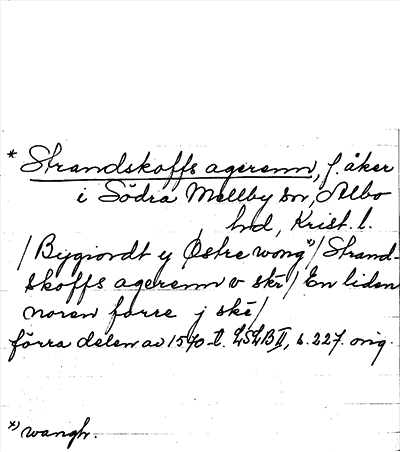 * Strandskoffs agerenn, f. åker
i Södra Mellby sn, Albo
hd, Krist. l.
/ Bygiordt y Østre wong x)/ Strand-
skoffs agerenn v skr / En liden
noren forre j skē/
förra delen av 1570-t. LSLB II, s. 227. orig.
x) wangh.